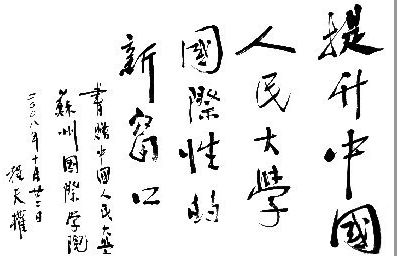 提升中國
人民大學
國際性的
新窗口
書贈中國人民大學
蘇州國際学院
二〇〇八年十月廿二日
程天權